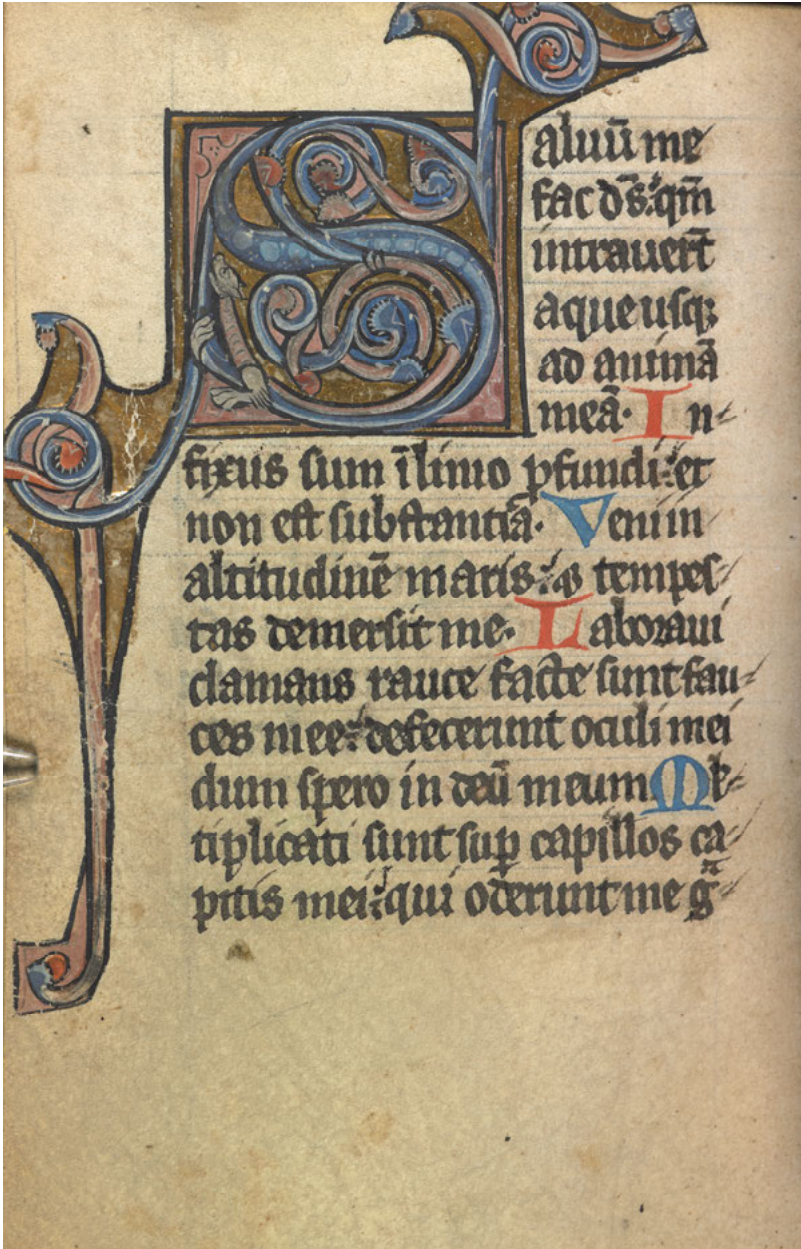 Saluū me
fac ds̄ : qm̄
intrauert̄
aque usq;
ad animā
meā. In-
fixus sum ī limo ꝓfundi : et
non est substantia. Veni in
altitudinē maris : & tempes-
tas demersit me. Laboraui
clamans rauce facte sunt fau-
ces mee : defecerunt oculi mei
dum spero in deū meum Ml-
tiplicati sunt sup̄ capillos ca-
pitis mei : qui oderunt me gᵃ-